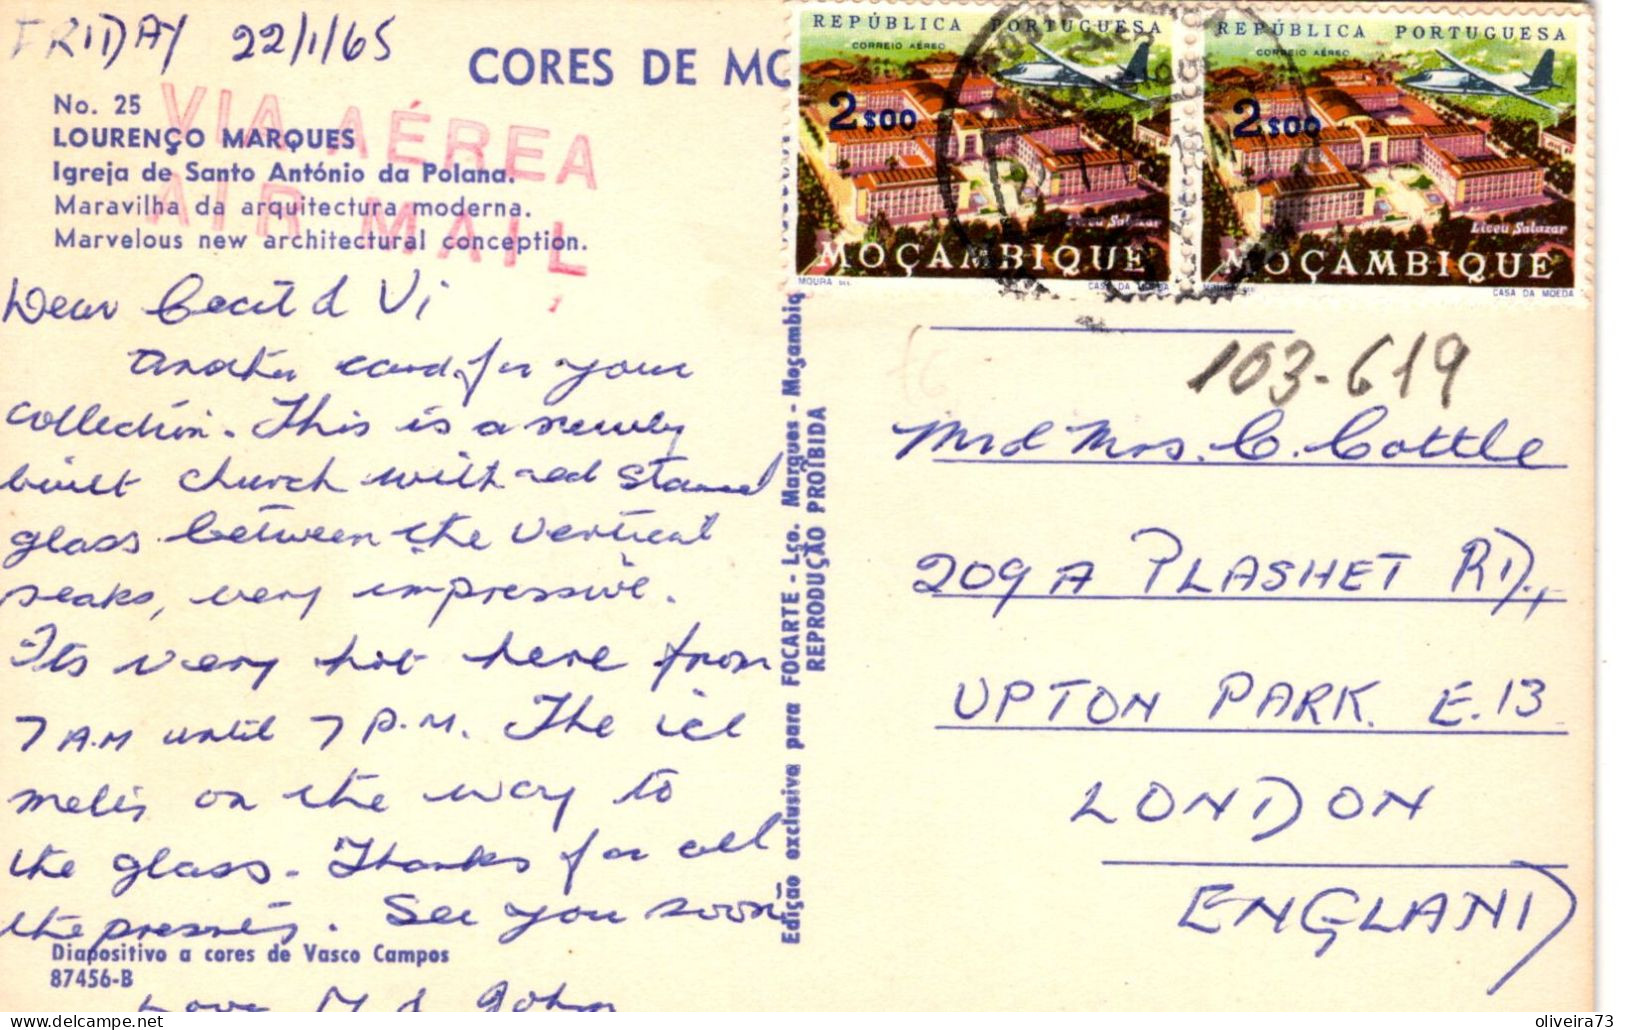 FRIDAY 22/1/65
CORES DE MO
No. 25
LOURENÇO MARQUES
Igreja de Santo António da Polana.
Maravilha da arquitectura moderna.
Marvelous new architectural conception.
VIA AÉREA
AIR MAIL
Dear Cecil & Vi
Another card for your
collection. This is a newly
built church with red stained
glass between the vertical
peaks, very impressive.
Its very hot here from
7 A.M until 7 P.M. The ice
melts on the way to
the glass. Thanks for all
the presents. See you soon
Diapositivo a cores de Vasco Campos
87456-B
Love M & John
Edição exclusiva para FOCARTE - Lço. Marques - Moçambiq
REPRODUÇÃO PROÏBIDA
REPÚBLICA PORTUGUESA
CORREIO AÉREO
2$00
Liceu Salazar
MOÇAMBIQUE
MOURA DEL.
CASA DA MOEDA
REPÚBLICA PORTUGUESA
CORREIO AÉREO
2$00
Liceu Salazar
MOÇAMBIQUE
CASA DA MOEDA
103-619
Mr & Mrs. C. Cottle
209A PLASHET RD.,
UPTON PARK. E.13
LONDON
ENGLAND
oliveira73